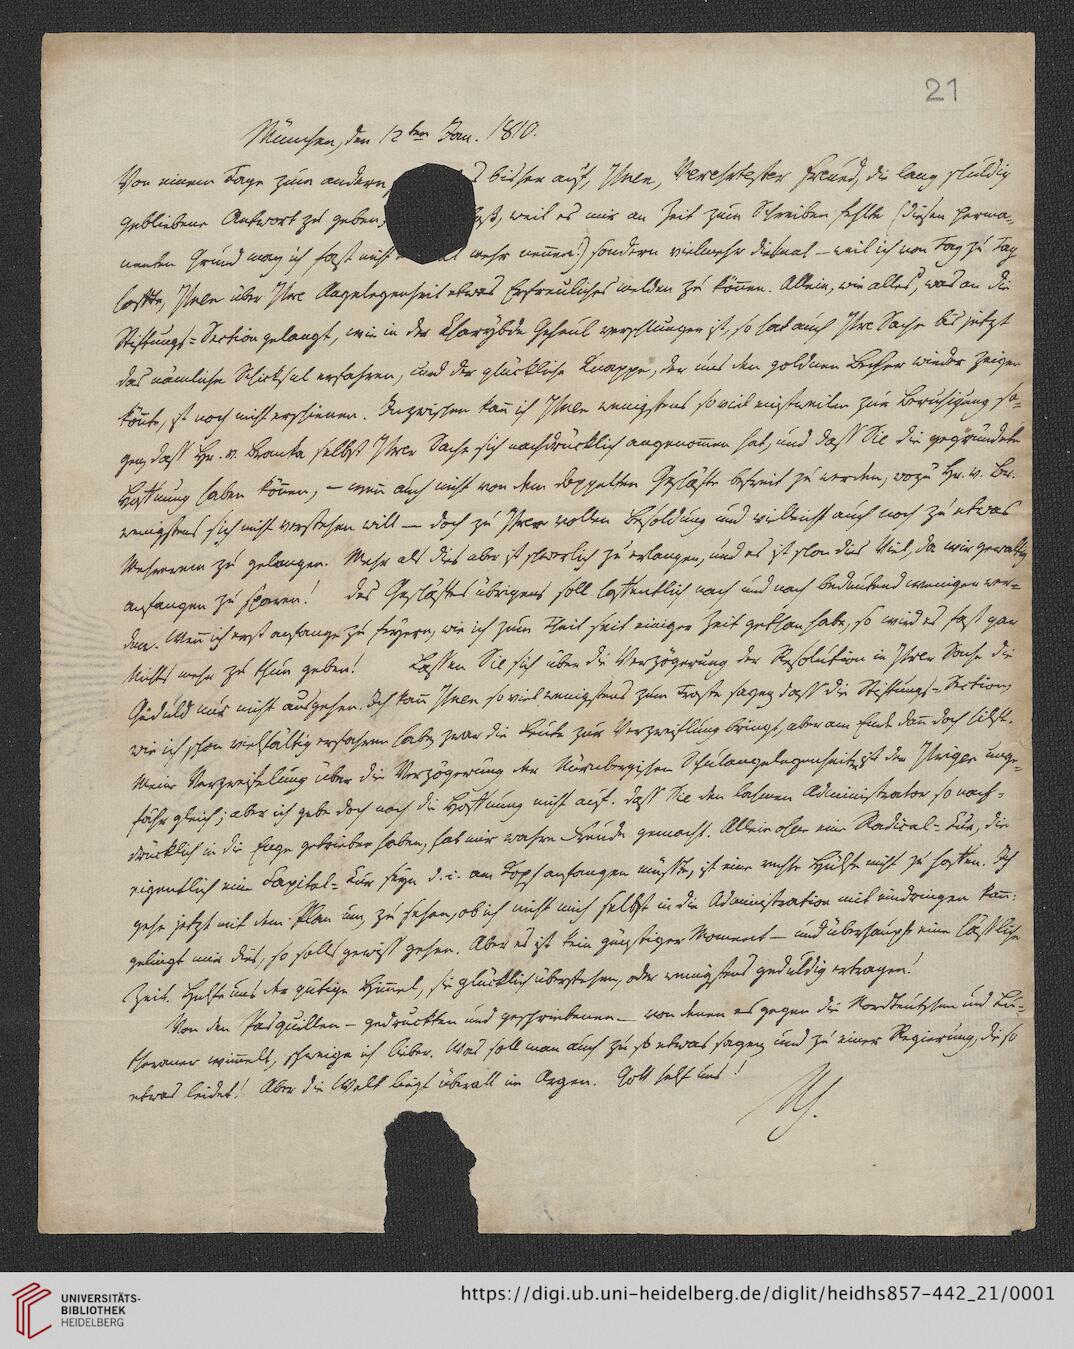 21
München, den 12ten Jan. 1810.
Von einem Tage zum andern, s bisher auf, Ihnen, Verehrtester Freund, die lang schuldig
gebliebene Antwort zu geben, weil es mir an Zeit zum Schreiben fehlte (diesen perma-
nenten Grund mag ich fast nicht mehr nennen!) sondern vielmehr diesmal – weil ich von Tag zu Tag
hoffte, Ihnen über Ihre Angelegenheit etwas Erfreuliches melden zu können. Allein, wie alles, was an die
Stiftungs-Section gelangt, wie in der Charybde Geheul verschlungen ist, so hat auch Ihre Sache bis jetzt
das nämliche Schicksal erfahren, und der glückliche Knappe, der uns den goldnen Becher wieder zeigen
könnte, ist noch nicht erschienen. Inzwischen kann ich Ihnen wenigstens soviel einstweilen zur Beruhigung sa-
gen, daß Hr. v. Branka selbst Ihrer Sache sich nachdrücklich angenommen hat, und daß Sie die gegründete
Hoffnung haben können, – wenn auch nicht von dem doppelten Geschäfte befreit zu werden, wozu Hr. v. Br.
wenigstens sich nicht verstehen will – doch zu Ihrer vollen Besoldung und vielleicht auch noch zu etwas
Mehrerem zu gelangen. Mehr als dies aber ist schwerlich zu erlangen, und es ist schon dies Viel, da wir gewaltig
anfangen zu sparen! Des Geschäftes übrigens soll hoffentlich nach und nach bedeutend weniger wer-
den. Wenn ich erst anfange zu feyern, wie ich zum Theil seit einiger Zeit gethan habe, so wird es fast gar
Nichts mehr zu thun geben! Lassen Sie sich über die Verzögerung der Resolution in Ihrer Sache die
Geduld nur nicht ausgehen. Ich kann Ihnen so viel wenigstens zum Troste sagen, daß die Stiftungs-Section,
wie ich schon vielfältig erfahren habe, zwar die Leute zur Verzweiflung bringt, aber am Ende dann doch hilft.
Meine Verzweifelung über die Verzögerung der Nürnbergischen Schulangelegenheiten ist der Ihrigen unge-
fähr gleich; aber ich gebe doch noch die Hoffnung nicht auf. Daß Sie den lahmen Administrator so nach-
drücklich in die Enge getrieben haben, hat mir wahre Freude gemacht. Allein ohne eine Radical-Cur, die
eigentlich eine Capital-Cur seyn d. i. am Kopf anfangen müßte, ist eine rechte Hülfe nicht zu hoffen. Ich
gehe jetzt mit dem Plan um, zu sehen, ob ich nicht mich selbst in die Administration mit eindringen kann:
gelingt mir dies, so solls gewiß gehen. Aber es ist kein günstiger Moment – und überhaupt eine häßliche
Zeit. Helfe uns der gütige Himmel, sie glücklich überstehen, oder wenigstens geduldig ertragen!
Von den Pasquillen – gedruckten und geschriebenen – von denen es gegen die Nordteutschen und Lu-
theraner wimmelt, schweige ich lieber. Was soll man auch zu so etwas sagen, und zu einer Regierung, die so
etwas leidet! Aber die Welt liegt überall im Argen. Gott helf uns!
UNIVERSITÄTS-
BIBLIOTHEK
HEIDELBERG
https://digi.ub.uni-heidelberg.de/diglit/heidhs857-442_21/0001